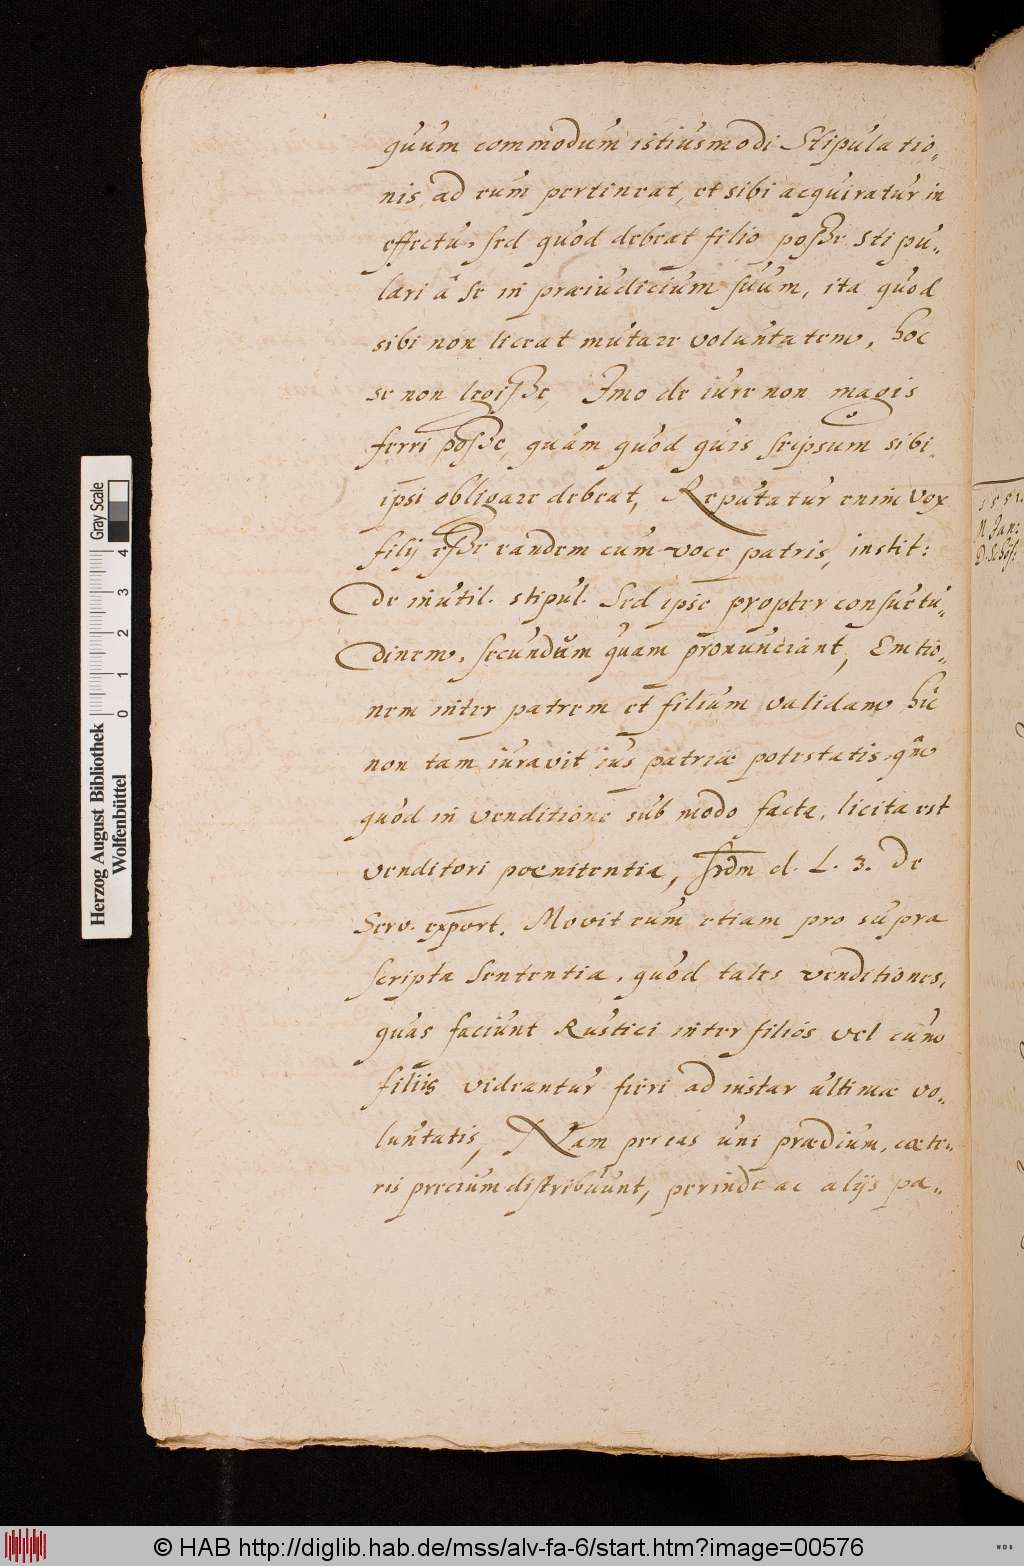 quum commodum istiusmodi Stipulatio„
nis, ad eum pertineat, et sibi acquiratur in
effectu, sed quod debeat filio posse stipu„
lari â se in præiudicium suum, ita quod
sibi non liceat mutare voluntatem, hoc
se non legisse, Imo de iure non magis
ferri posse, quàm quod quis seipsum sibi
ipsi obligare debeat, Reputatur enim vox
filij esse eandem cum voce patris, instit:
De inutil. stipul. Sed ipse propter consuetu„
dinem, secundùm quam pronunciant, Emtio„
nem inter patrem et filium validam hîc
non tam iuravit ius patriæ potestatis
quod in venditione sub modo facta, licita est
venditori poenitentia, d. L. 3. De
Serv. export. Movit eum etiam pro supra
scripta Sententia, quòd tales venditiones,
quas faciunt Rustici inter filiós vel cum
filiis videantur fieri ad instar ultimæ vo„
luntatis, Nam per eas uni prædium, cæte„
ris precium distribuunt, perinde ac alijs pa„
1551.
N. Jan:
Gray Scale
4 3 2 1 0
Herzog August Bibliothek
Wolfenbüttel
© HAB http://diglib.hab.de/mss/alv-fa-6/start.htm?image=00576